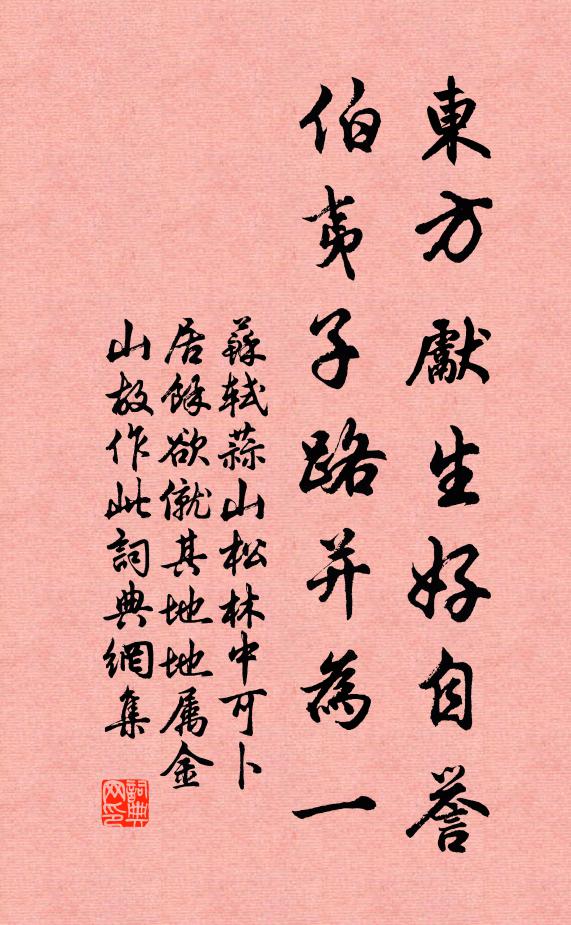 東方獻生好自譽
伯夷子路并為一
蘇軾蒜山松林中可卜
居餘欲僦其地地属金
山故作此詞典網集
詞典网印